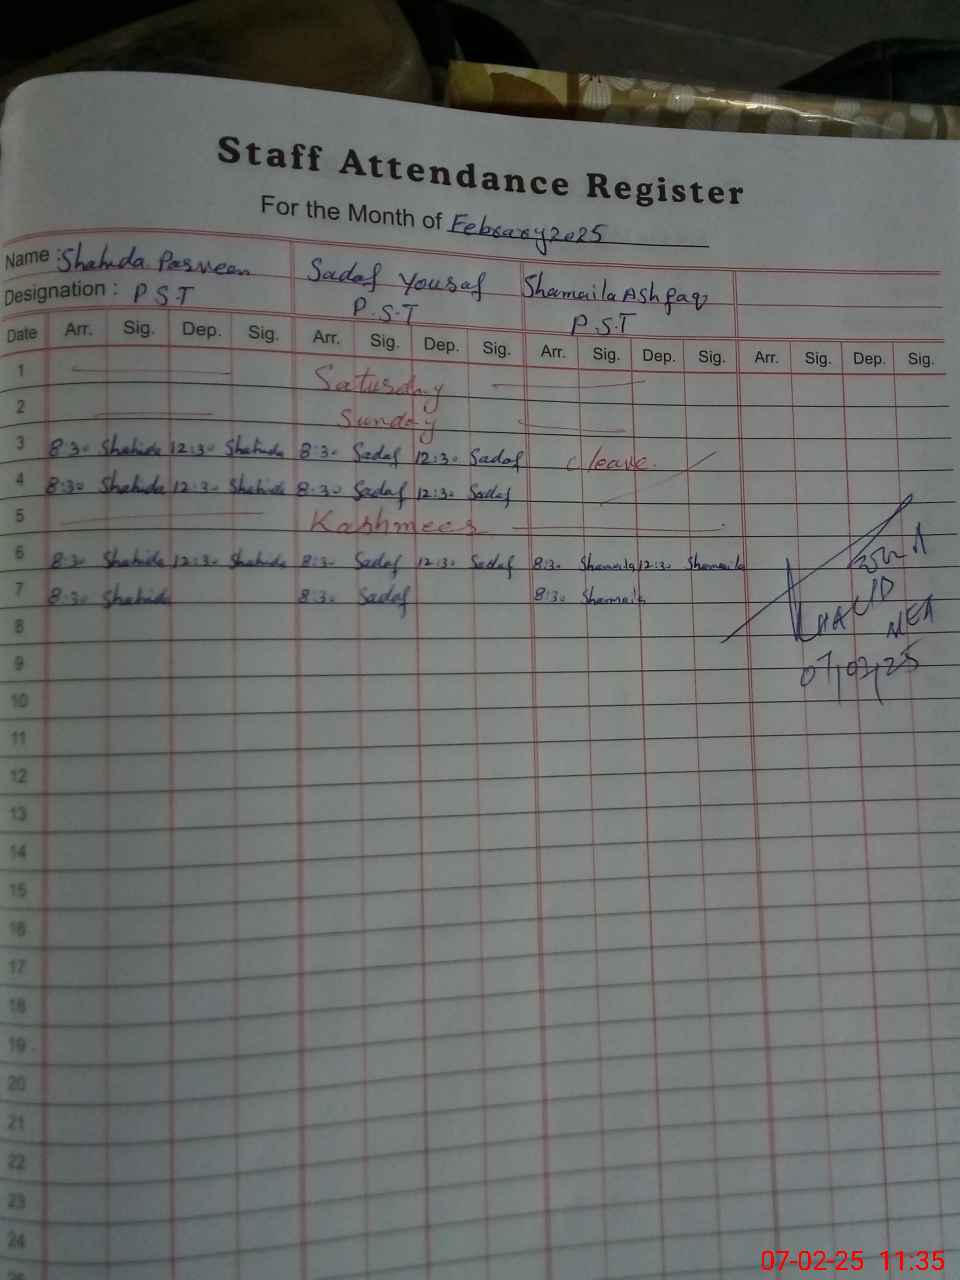 Staff Attendance Register
For the Month of February 2025
Name : Shahida Parveen Sadaf Yousaf Shamaila Ashfaq
Designation : P S T P.S.T P.S.T
Date Arr. Sig. Dep. Sig. Arr. Sig. Dep. Sig. Arr. Sig. Dep. Sig. Arr. Sig. Dep. Sig.
1 Saturday
2 Sunday
3 8:30 Shahida 12:30 Shahida 8:30 Sadaf 12:30 Sadaf c leave.
4 8:30 Shahida 12:30 Shahida 8:30 Sadaf 12:30 Sadaf
5 Kashmeer
6 8:30 Shahida 12:30 Shahida 8:30 Sadaf 12:30 Sadaf 8:30 Shamaila 12:30 Shamaila
7 8:30 Shahida 8:30 Sadaf 8:30 Shamaila
MEA
8
07/02/25
9
10
11
12
13
14
15
16
17
18
19
20
21
22
23
24
07-02-25 11:35